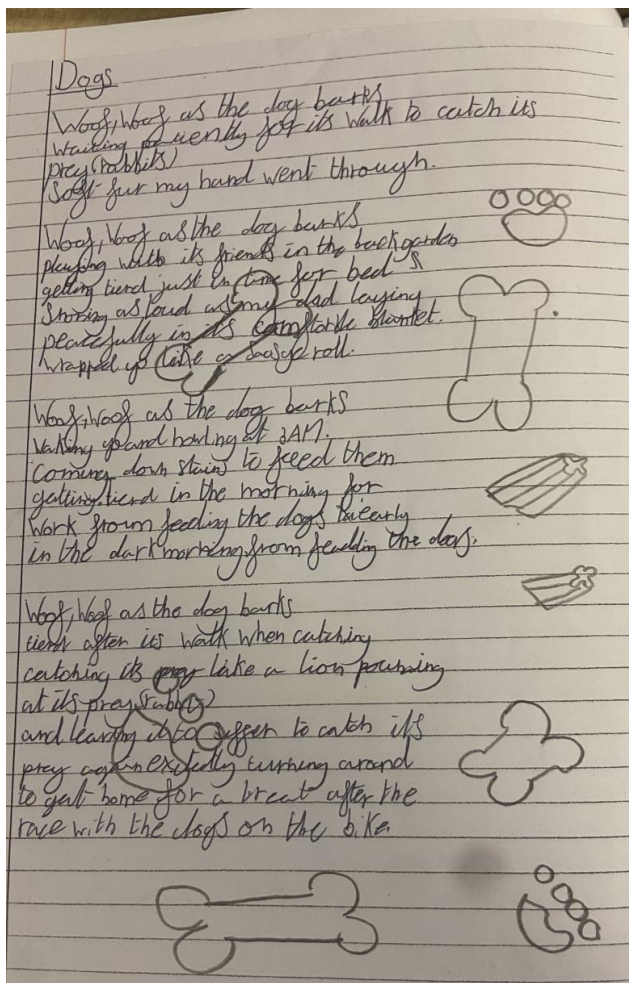 Dogs
Woof, Woof as the dog barks
waiting patiently for its walk to catch its
prey (rabbits)
Soft fur my hand went through.
Woof, Woof as the dog barks
playing with its friends in the back garden
getting tierd just in time for bed
Snoring as loud as my dad laying
peacefully in its comfortable blanket.
wrapped up like a sausge roll.
Woof, Woof as the dog barks
Waking up and howling at 3AM.
Coming down stairs to feed them
getting tierd in the morning for
Work from feeding the dogs early
in the dark morning from feadding the dogs.
Woof, Woof as the dog barks
tierd after its walk when catching
catching its prey like a lion pouncing
at its prey (rabbits)
and leaving it to suffer to catch its
prey again exitedly turning around
to get home for a breat after the
race with the dogs on the bike.